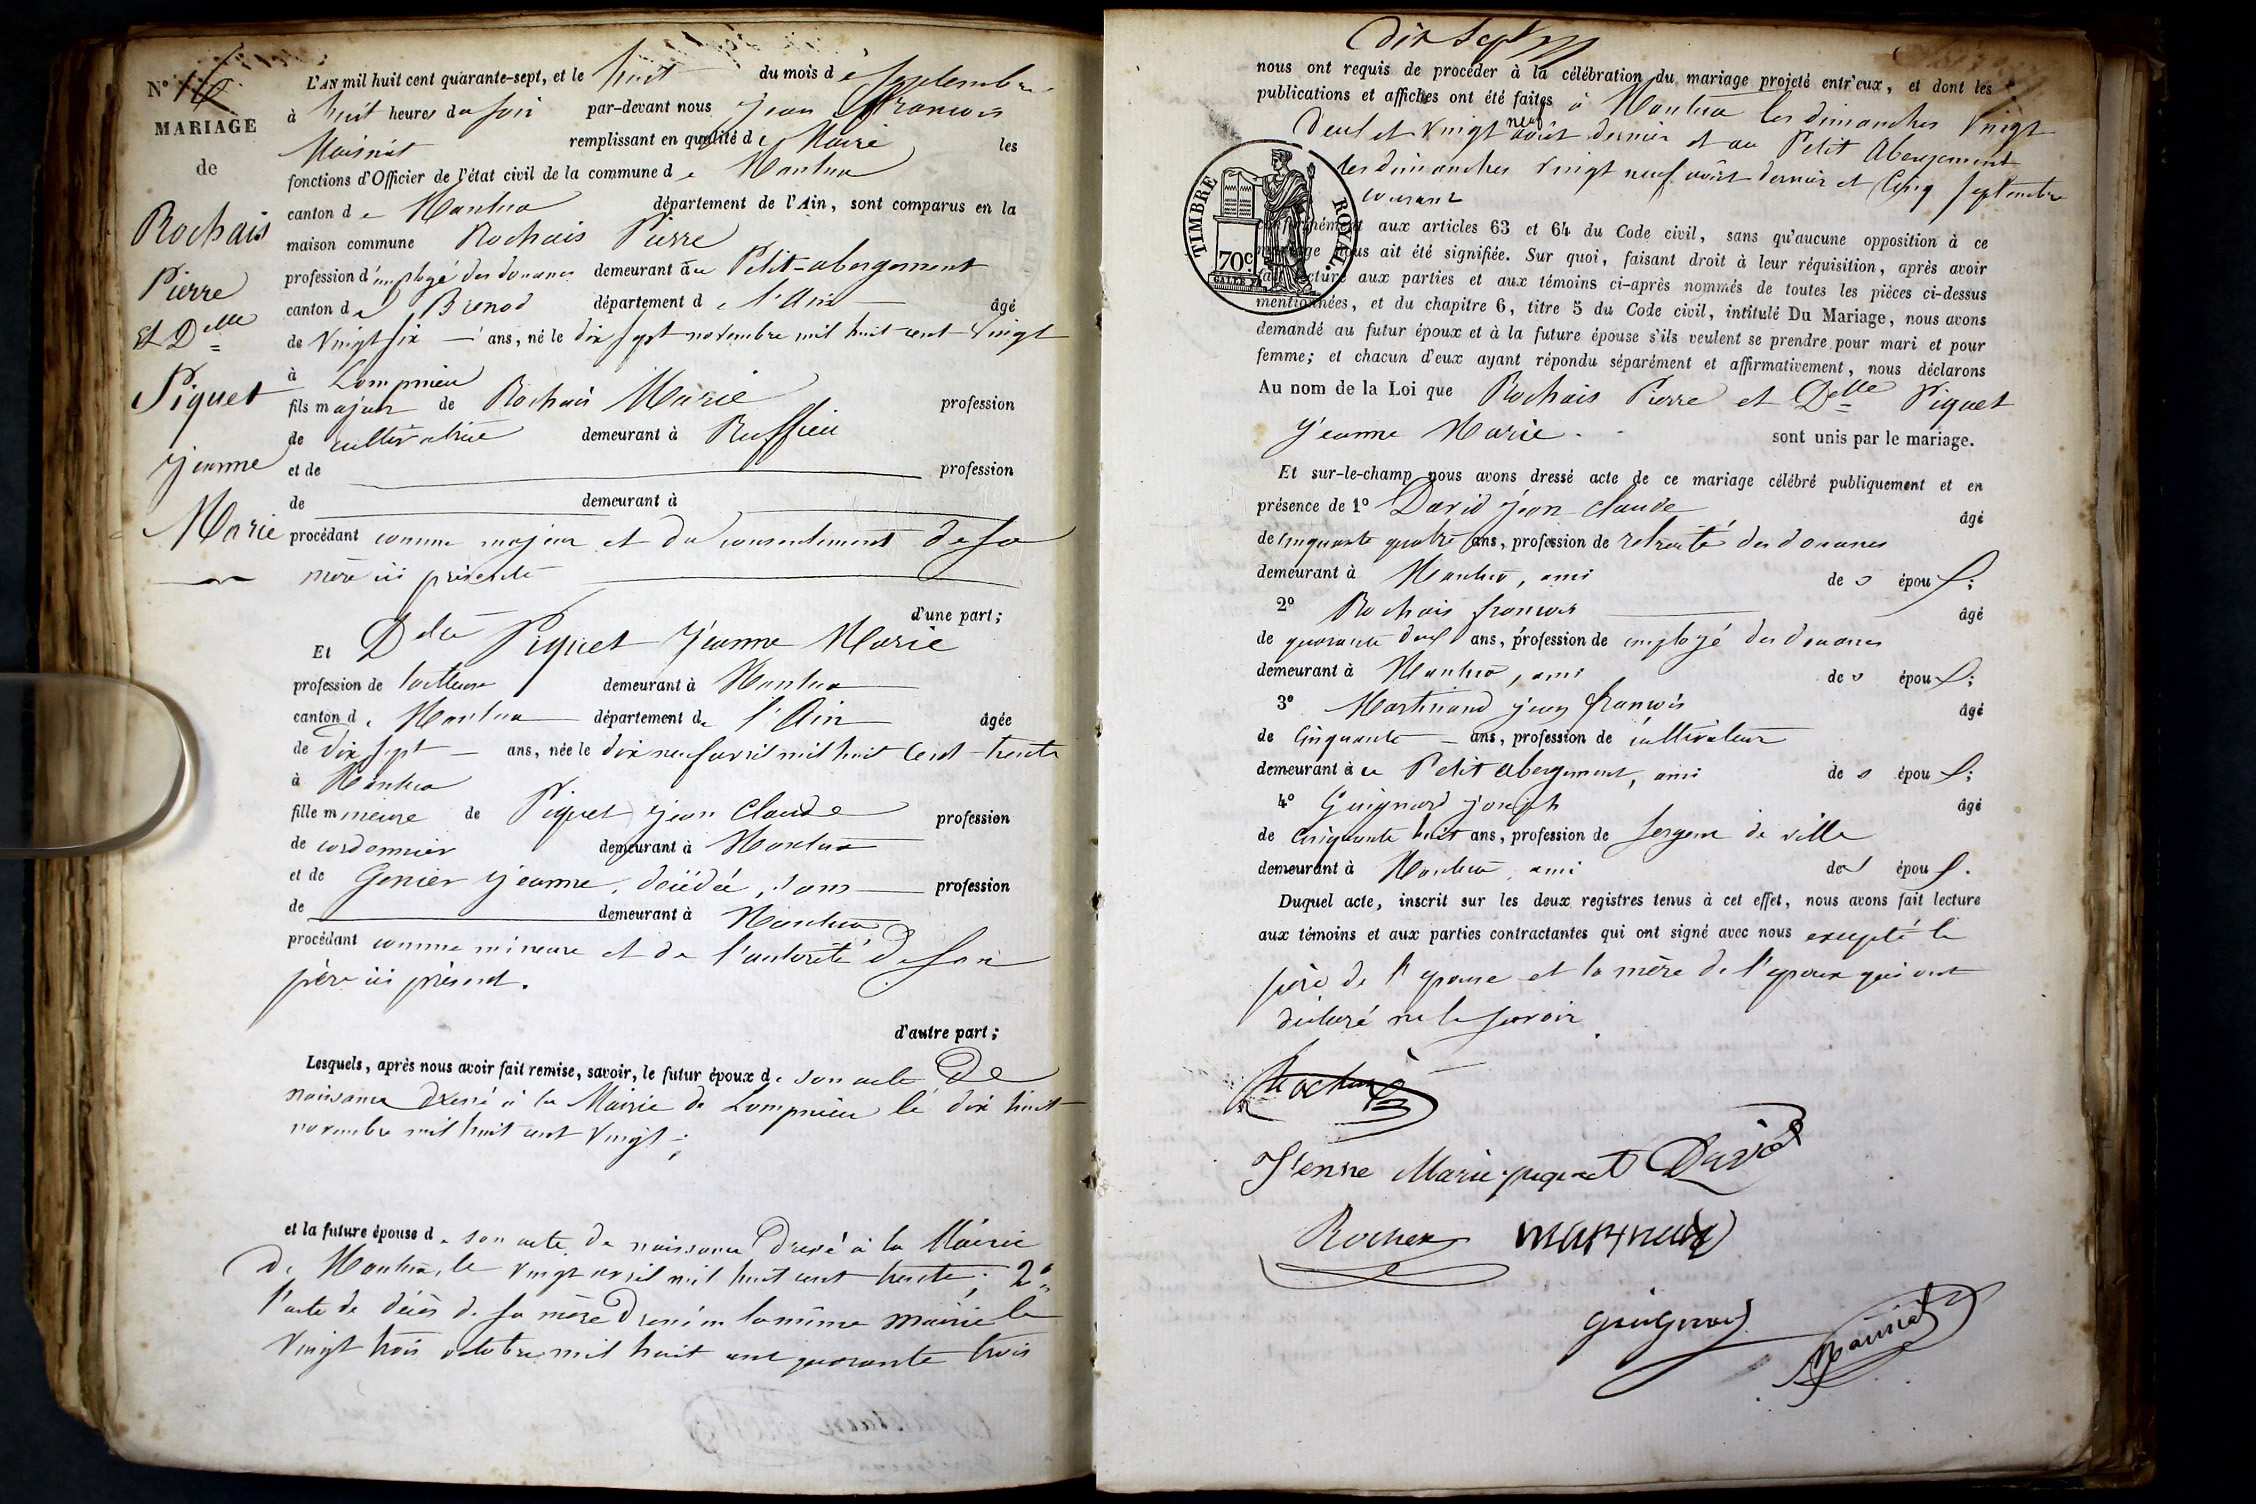 N° 16
MARIAGE
de
Rochais
Pierre
Et Delle
Piquet
jeanne
Marie
L'AN mil huit cent quarante-sept, et le huit du mois de Septembre
à huit heures du soir par-devant nous jean françois
Maisniat remplissant en qualité de Maire les
fonctions d'Officier de l'état civil de la commune de Nantua
canton de Nantua département de l'Ain, sont comparus en la
maison commune Rochais Pierre
profession d'employé des douanes demeurant au Petit-abergement
canton de Brenod département de l'Ain âgé
de Vingt six ans, né le dix sept novembre mil huit cent vingt
à Lompnieu
fils majeur de Rochais Marie profession
de cultivatrice demeurant à Ruffieu
et de profession
de demeurant à
procédant comme majeur et du consentement de sa
mère ici présente
d'une part;
Et Delle Piquet Jeanne Marie
profession de tailleuse demeurant à Nantua
canton de Nantua département de l'Ain âgée
de Dix sept ans, née le dix neuf avril mil huit cent trente
à Nantua
fille mineure de Piquet jean Claude profession
de cordonnier demeurant à Nantua
et de Genier jeanne, décédée, sans profession
de demeurant à Nantua
procédant comme mineure et de l'autorité de son
père ici présent.
d'autre part;
Lesquels, après nous avoir fait remise, savoir, le futur époux de son acte de
naissance dressé à la Mairie de Lompnieu le dix huit
novembre mil huit cent vingt;
et la future épouse de son acte de naissance dressé à la Mairie
de Nantua, le vingt avril mil huit cent trente; 2°
l'acte de décès de sa mère dressé en la même mairie le
vingt trois octobre mil huit cent quarante trois
dix sept
nous ont requis de procéder à la célébration du mariage projeté entr'eux, et dont les
publications et affiches ont été faites à Nantua les dimanches vingt
deux et vingt neuf août dernier et au Petit Abergement
les dimanches vingt neuf août dernier et cinq septembre
courant
TIMBRE ROYAL.
70c
conformément aux articles 63 et 64 du Code civil, sans qu'aucune opposition à ce
mariage nous ait été signifiée. Sur quoi, faisant droit à leur réquisition, après avoir
fait lecture aux parties et aux témoins ci-après nommés de toutes les pièces ci-dessus
mentionnées, et du chapitre 6, titre 5 du Code civil, intitulé Du Mariage, nous avons
demandé au futur époux et à la future épouse s'ils veulent se prendre pour mari et pour
femme; et chacun d'eux ayant répondu séparément et affirmativement, nous déclarons
Au nom de la Loi que Rochais Pierre et Delle Piquet
jeanne Marie sont unis par le mariage.
Et sur-le-champ nous avons dressé acte de ce mariage célébré publiquement et en
présence de 1° David jean claude âgé
de cinquante quatre ans, profession de retraité des douanes
demeurant à Nantua, ami des époux;
2° Rochais françois âgé
de quarante deux ans, profession de employé des douanes
demeurant à Nantua, ami des époux;
3° Martinand jean françois âgé
de cinquante ans, profession de cultivateur
demeurant au Petit abergement, ami des époux;
4° Guignard joseph âgé
de cinquante huit ans, profession de sergent de ville
demeurant à Nantua, ami des époux.
Duquel acte, inscrit sur les deux registres tenus à cet effet, nous avons fait lecture
aux témoins et aux parties contractantes qui ont signé avec nous excepté le
père de l'épouse et la mère de l'époux qui ont
déclaré ne le savoir
Rochais
Jenne Marie piquet David
Rochex Martinand
guignard
Maisniat